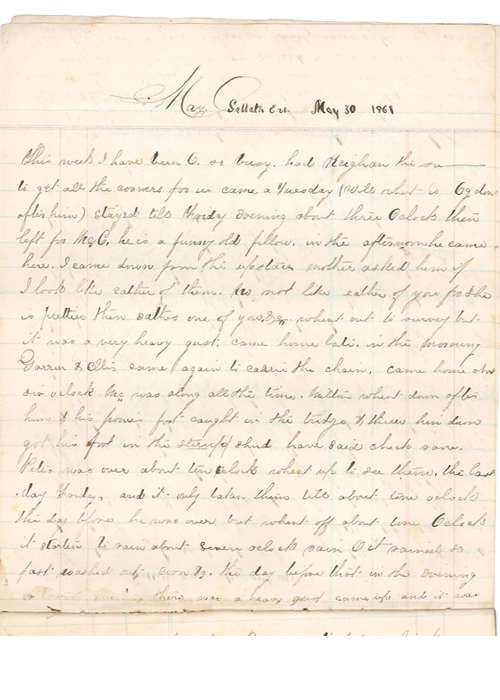 May. Sattath Eve. May 30 1861
This week I have been O. so busy. had Neighran the sur
to get all the cooners for us came a Tuesday (Will whent to
after him) stayed till Fridy evening about three Oclock then
left for McC. he is a funny old fellow. in the afternoon he came
here. I came down from the upstairs mother asked him if
I look like eather of them. no not like eather of you for she
is prettier then eather one of you. whent out to survey but
it was a very heavy gust. came home late. in the morning
Darren & Ellis came again to carrie the chain. came home
six oclock Mc was along all the time. Miltin whent down after
him & his ponies foot caught in the bridge & threw him down
got his foot in the stirup should have said check rane.
Peter was over about ten oclock whent up to see them. the last
day Friday, and it only taken them till about one oclock
the day before he was over but whent off about one Oclock
it startin to rain about seven oclock rain O it rained so
fast washed out the day before that in the evening
there was a heavy gust came up and it was